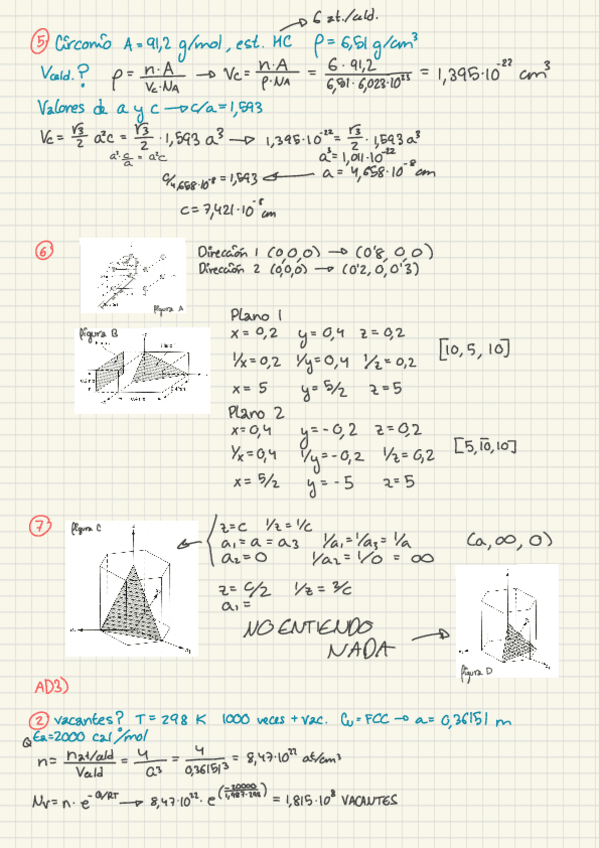 6 at./celd.
⑤ Circonio A = 91,2 g/mol, est. HC ρ = 6,51 g/cm³
Vceld.? ρ = n·A / Vc·NA → Vc = n·A / ρ·NA = 6·91,2 / 6,51·6,023·10²³ = 1,395·10⁻²² cm³
Valores de a y c → c/a = 1,593
Vc = √3/2 a²c = √3/2 · 1,593 a³ → 1,395·10⁻²² = √3/2 · 1,593 a³
a³·c/a = a²c a³ = 1,011·10⁻²²
c/4,658·10⁻⁸ = 1,593 ← a = 4,658·10⁻⁸ cm
c = 7,421·10⁻⁸ cm
⑥ Dirección 1 (0,0,0) → (0'8, 0, 0)
Dirección 2 (0,0,0) → (0'2, 0, 0'3)
figura A
Plano 1
figura B
x = 0,2 y = 0,4 z = 0,2
1/x = 0,2 1/y = 0,4 1/z = 0,2 [10, 5, 10]
x = 5 y = 5/2 z = 5
Plano 2
x = 0,4 y = -0,2 z = 0,2
1/x = 0,4 1/y = -0,2 1/z = 0,2 [5, 1̅0̅, 10]
x = 5/2 y = -5 z = 5
⑦ figura C z = c 1/z = 1/c
a₁ = a = a₃ 1/a₁ = 1/a₃ = 1/a (a, ∞, 0)
a₂ = 0 1/a₂ = 1/0 = ∞
z = c/2 1/z = 2/c
a₁ =
NO ENTIENDO
NADA
figura D
AD3)
② vacantes? T = 298 K 1000 veces + vac. Cu = FCC → a = 0,36151 m
Q Ea = 2000 cal/mol
n = nat/celd / Vceld = 4 / a³ = 4 / 0,36151³ = 8,47·10²² at/cm³
Nv = n·e^(-Q/RT) → 8,47·10²² · e^(-20000 / 1,987·298) = 1,815·10⁸ VACANTES